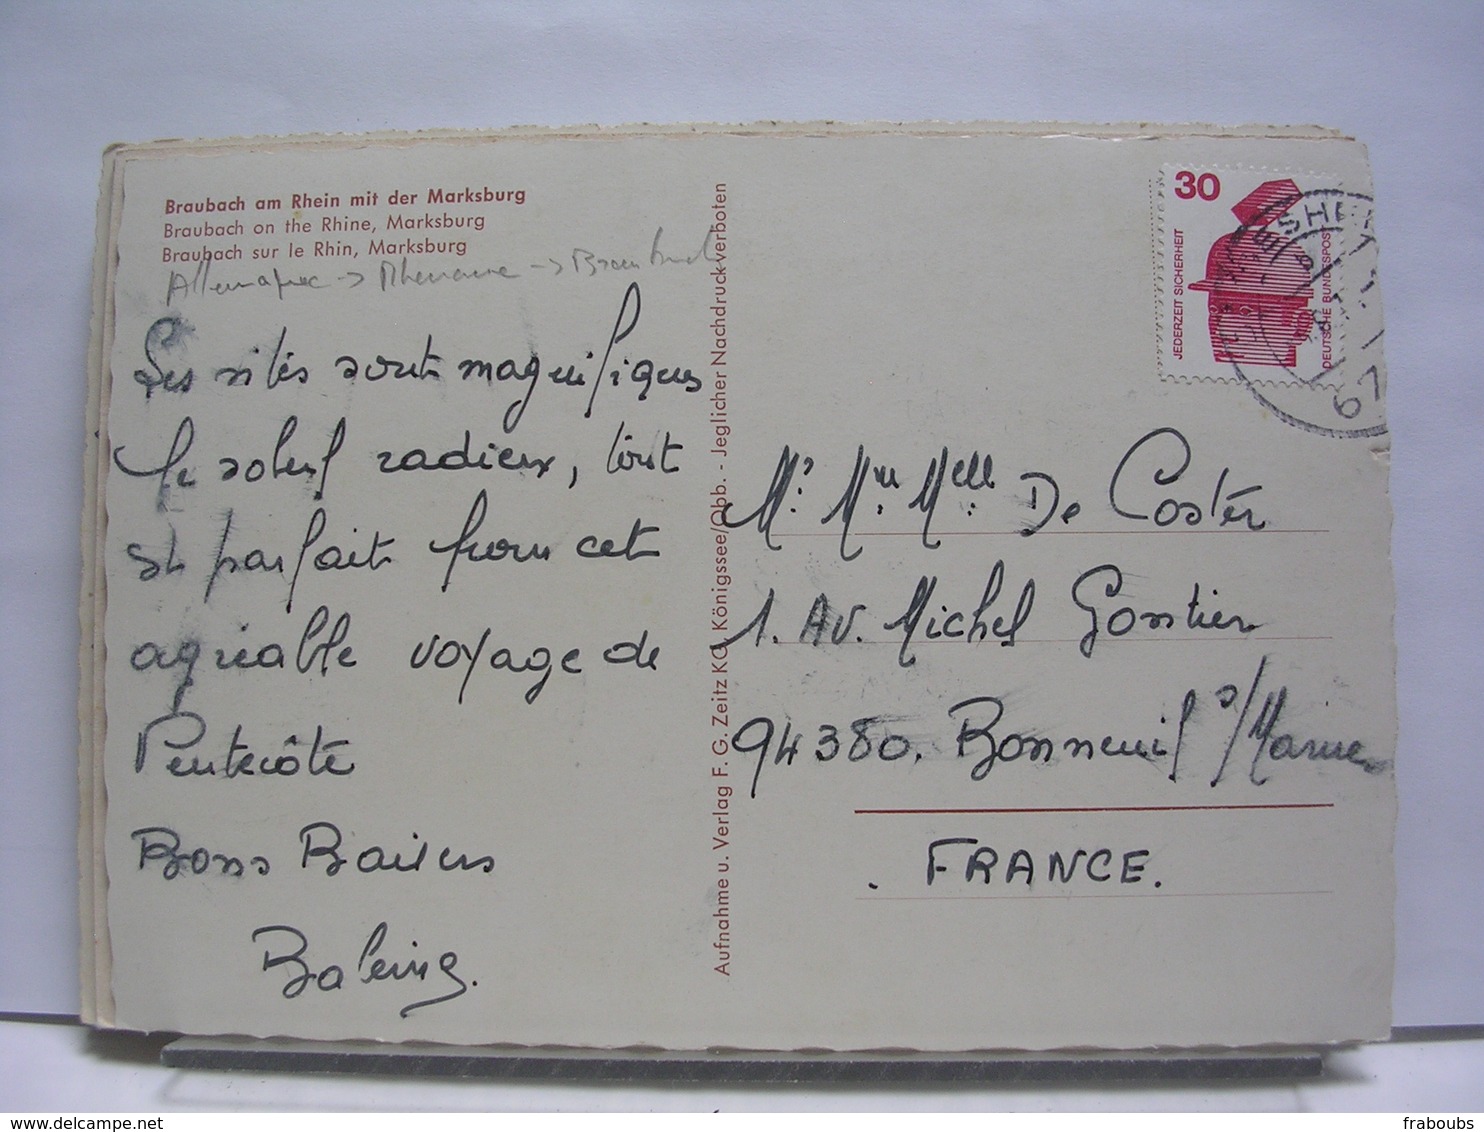 Braubach am Rhein mit der Marksburg
Braubach on the Rhine, Marksburg
Braubach sur le Rhin, Marksburg
Allemagne -> Rhénanie -> Braubach
Les sites sont magnifiques
le soleil radieux, tout
est parfait pour cet
agréable voyage de
Pentecôte
Bons Baisers
Aufnahme u. Verlag F. G. Zeitz KG, Königssee/Obb. - Jeglicher Nachdruck verboten
30
JEDERZEIT SICHERHEIT
DEUTSCHE BUNDESPOST
Mr. Mme Melle De Coster
1. Av. Michel Gontier
94380. Bonneuil s/Marne
. FRANCE.
www.delcampe.net
fraboubs